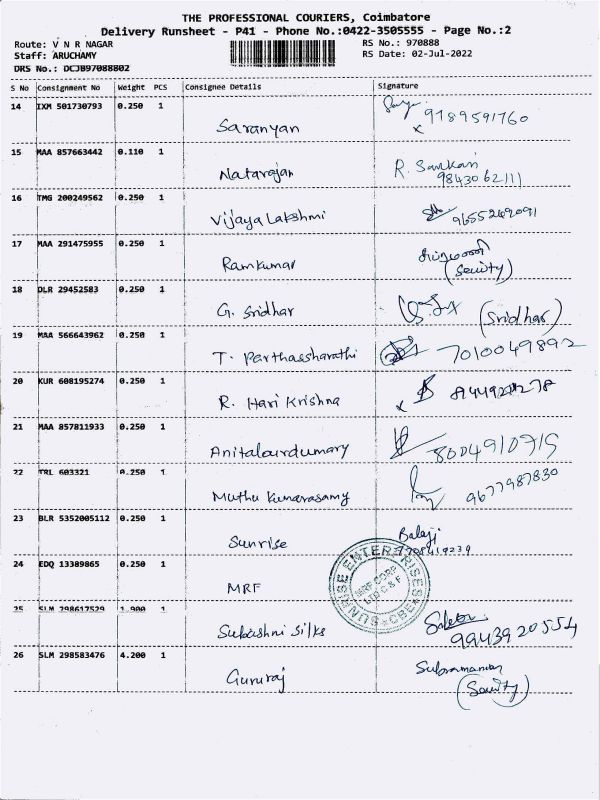 THE PROFESSIONAL COURIERS, Coimbatore
Delivery Runsheet - P41 - Phone No.:0422-3505555 - Page No.:2
Route: V N R NAGAR RS No.: 970888
Staff: ARUCHAMY RS Date: 02-Jul-2022
DRS No.: DCJB97088802
S No Consignment No Weight PCS Consignee Details Signature
14 IXM 501730793 0.250 1 Saranyan 9789591760
15 MAA 857663442 0.110 1 Natarajan R. Sankari
9843062111
16 TMG 200249562 0.250 1 Vijaya Lakshmi 9655249091
17 MAA 291475955 0.250 1 Ramkumar
18 DLR 29452583 0.250 1 G. Sridhar (Sridhar)
19 MAA 566643962 0.250 1 T. Parthassharathi 7010049892
20 KUR 608195274 0.250 1 R. Hari Krishna
21 MAA 857811933 0.250 1
22 TRL 603321 0.250 1 Muthu Kumarasamy 9677987830
23 BLR 5352005112 0.250 1 Sunrise Balaji
24 EDQ 13389865 0.250 1 MRF
SUNRISE ENTERPRISES CBE
MRF CORP
LTD C & F
25 SLM 298617529 1.900 1 Subashni Silks
9943920554
26 SLM 298583476 4.200 1 Gururaj Subramanian